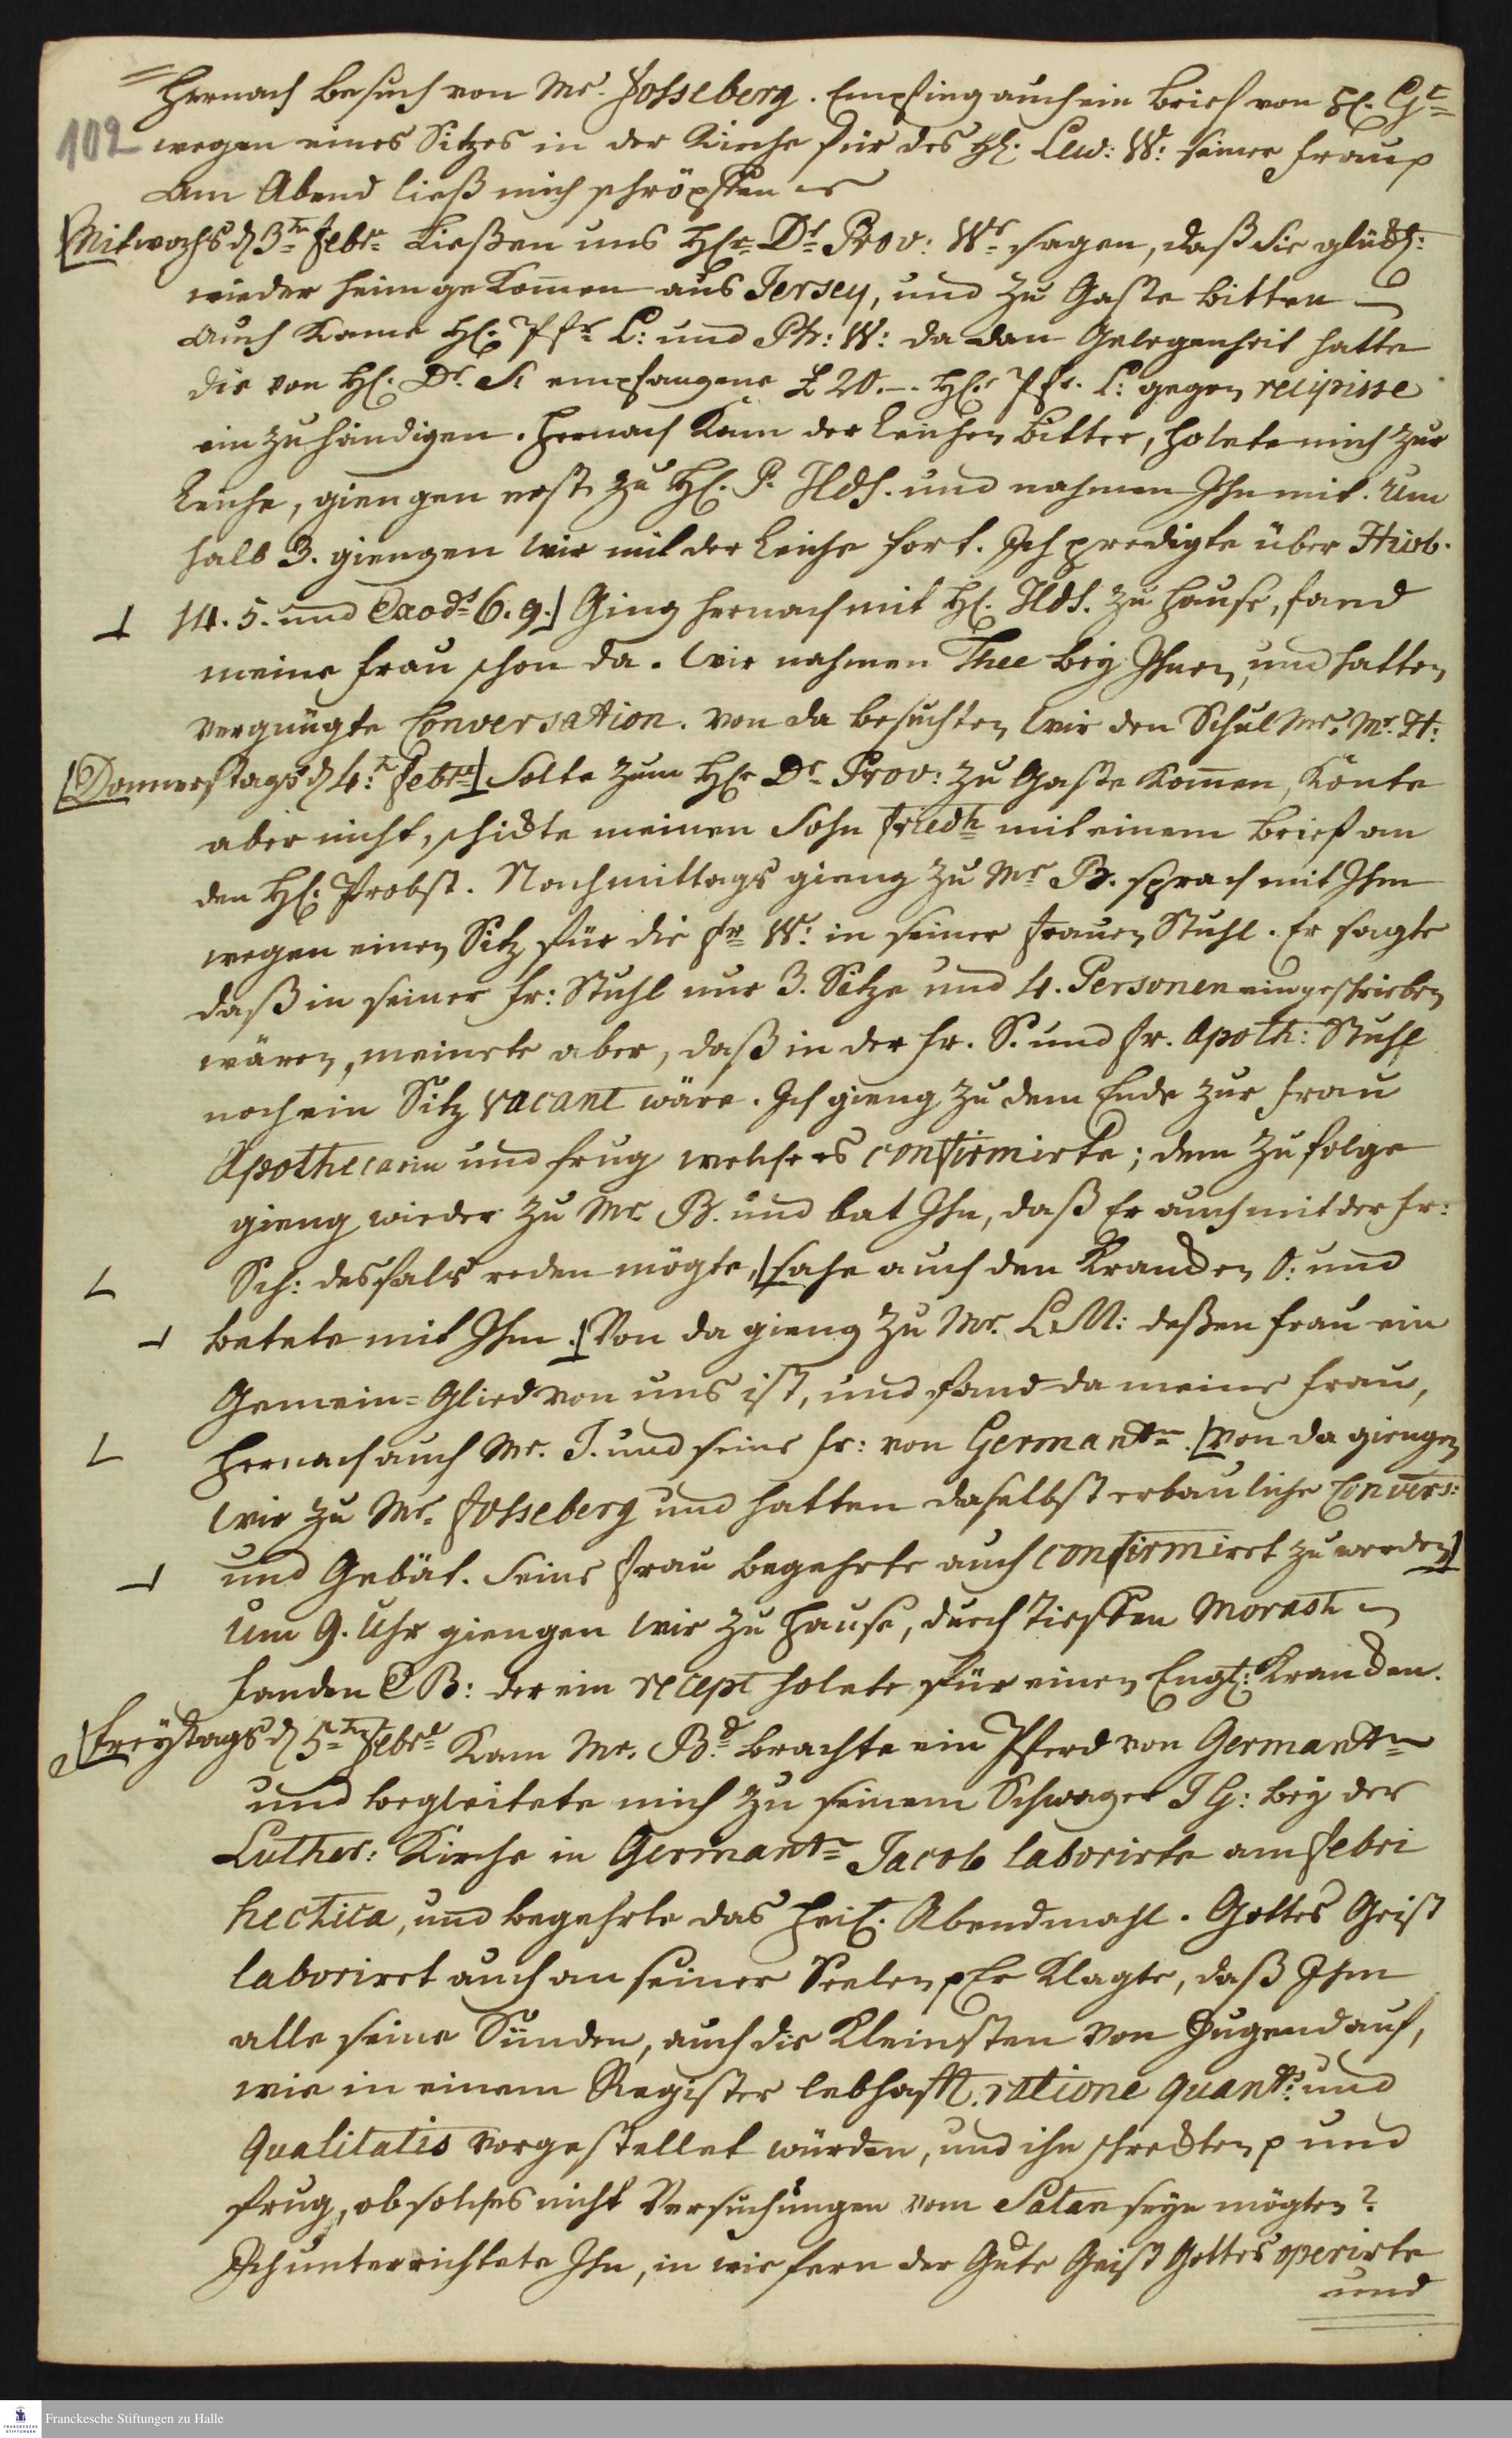 Hernach Besuch von Mr. Fosseberg. Empfing auch ein Brief von H. Gr
102 wegen eines Sitzes in der Kirche für des H. Lud: W: seiner Frau p
Am Abend ließ mich schröpffen
[Mitwochs d 3tn Febr. Ließen uns HEr. Dr. Prov: Wr. sagen, daß Sie glückl:
wieder heimgekom̅en aus Jersey, und zu Gaste bitten
Auch kame H. Pfr. L: und Ptr: W: da dan Gelegenheit hatte
die von H. Dr. S. empfangene £ 20.—. H. Pfr. L: gegen recipisse
einzuhändigen. Hernach kam der Leichen bitter, holete mich zur
Leiche, giengen erst zu H. P. Hds. und nahmen Ihn mit. Um
halb 3. giengen wir mit der Leiche fort. Ich predigte über Hiob.
14. 5. und Exod. 6. 9.] Ging hernach mit H. Hds. zu Hause, fand
meine Frau schon da. Wir nahmen Thee bey Ihnen, und hatten
vergnügte Conversation. Von da besuchten wir den Schul Mr. Mr. H:
[Donnerstags d 4.t Febr.] Solte zum HEr Dr. Prov: zu Gaste kom̅en, konte
aber nicht, schickte meinen Sohn Friedh mit einem Brief an
den H. Probst. Nachmittags gieng zu Mr. B. sprach mit Ihm
wegen einen Sitz für die Fr W: in seiner Frauen Stuhl. Er sagte
daß in seiner Fr: Stuhl nur 3. Sitze und 4. Personen eingeschrieben
wären, meinete aber, daß in der Fr. S. und Fr. Apoth: Stuhl
noch ein Sitz vacant wäre. Ich gieng zu dem Ende zur Frau
Apothecarin und frug welche es confirmirte; dem zufolge
gieng wieder zu Mr. B. und bat Ihn, daß Er auch mit der Fr:
Sch: desfals reden mögte,] [sahe auch den Krancken O: und
betete mit Ihm.] Von da gieng zu Mr. L. M: deßen Frau ein
Gemein=Glied von uns ist, und fand da meine Frau,
Hernach auch Mr. J. und seine Fr: von Germantn. [Von da giengen
wir zu Mr. Fosseberg und hatten daselbst erbauliche Convers:
und Gebät. Seine Frau begehrte auch confirmiret zu werden]
Um 9. Uhr giengen wir zu Hause, durch tieffen Morast
fanden C B: der ein recept holete für einen Engl: Krancken.
[Freytags d 5tn Febr. Kam Mr. Bd. brachte ein Pferd von Germantn
und begleitete mich zu seinem Schwager J G: bey der
Luther: Kirche in Germantn Jacob laborirte am febri
hectica, und begehrte das Heil. Abendmahl. Gottes Geist
laboriret auch an seiner Seelen p Er klagte, daß Ihm
alle seine Sünden, auch die kleinsten von Jugend auf,
wie in einem Register lebhafft. ratione quants: und
qualitatis vorgestellet würden, und ihn schreckten p und
frug, ob solches nicht Versuchungen vom Satan seyn mögten?
Ich unterrichtete Ihn, in wie fern der Gute Geist Gottes operirte
und
Franckesche Stiftungen zu Halle